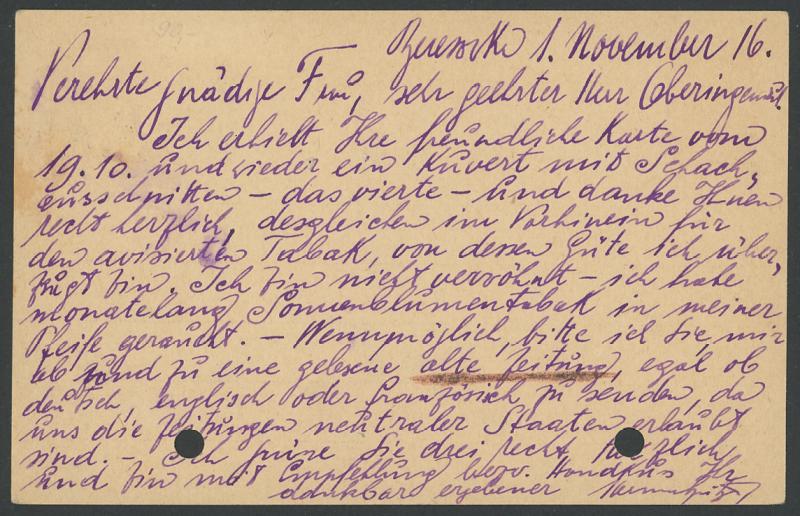 1. November 16.
Verehrte gnädige Frau, sehr geehrter Herr Oberingenieur!
Ich erhielt Ihre freundliche Karte vom
19.10. und wieder ein Kuvert mit Schach-
ausschnitten – das vierte – und danke Ihnen
recht herzlich, desgleichen im Vorhinein für
den avisierten Tabak, von dessen Güte ich über-
zeugt bin. Ich bin nicht verwöhnt – ich habe
monatelang Sonnenblumentabak in meiner
Pfeife geraucht. – Wennmöglich, bitte ich Sie, mir
ab und zu eine gelesene alte Zeitung, egal ob
deutsch, englisch oder französisch zu senden, da
uns die Zeitungen neutraler Staaten erlaubt
sind. – Ich grüsse Sie drei recht herzlich
und bin mit Empfehlung bezw. Handkuss Ihr
dankbar ergebener